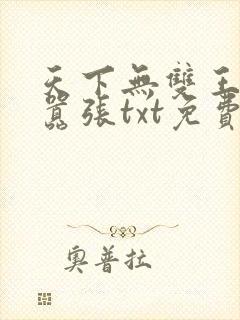 天下無雙王
囂張txt免費
奧普拉